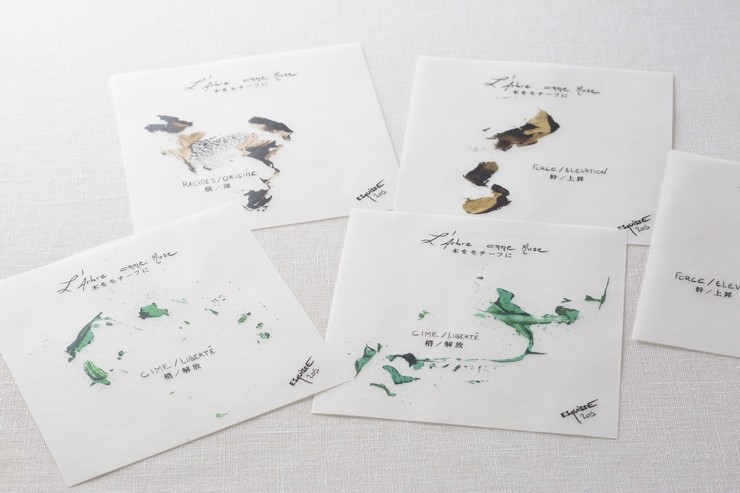 L'Arbre comme Muse
木をモチーフに
RACINES/ORIGINE
根/源
ESQUISSE
2015
L'Arbre comme Muse
木をモチーフに
FORCE/ELEVATION
幹/上昇
ESQUISSE
2015
L'Arbre comme Muse
木をモチーフに
CIME/LIBERTÉ
梢/解放
ESQUISSE
2015
L'Arbre comme Muse
木をモチーフに
CIME/LIBERTÉ
梢/解放
ESQUISSE
2015
FORCE/ELEV
幹/上昇